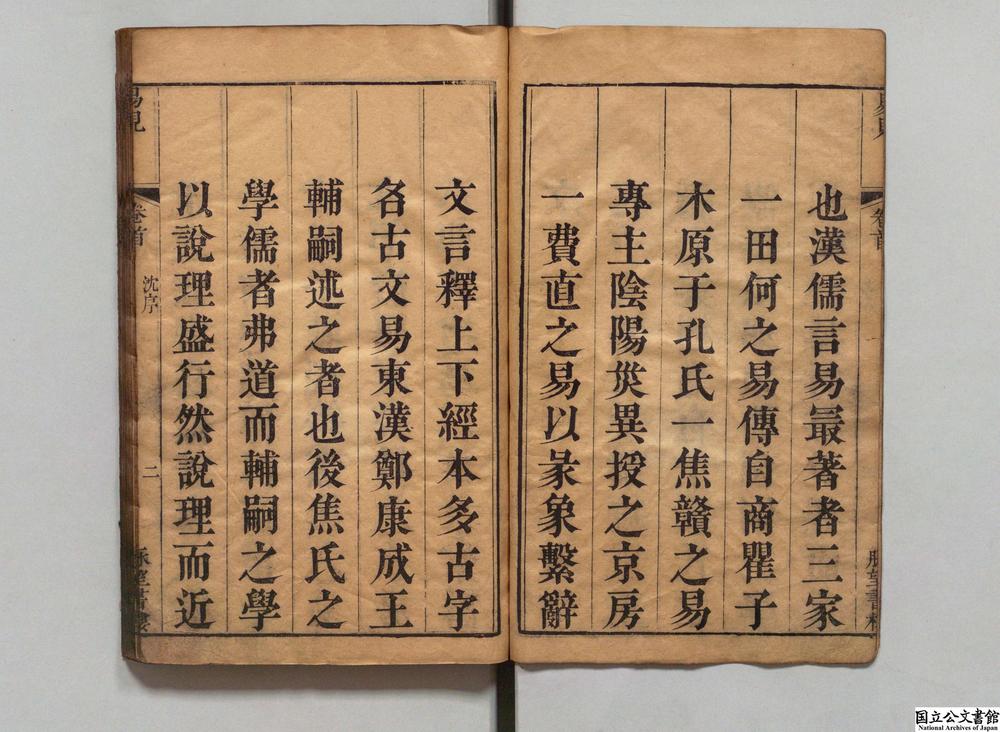 也漢儒言易最著者三家
一田何之易傳自商瞿子
木原于孔氏一焦贛之易
專主陰陽災異授之京房
一費直之易以彖象繫辭
文言釋上下經本多古字
各古文易東漢鄭康成王
輔嗣述之者也後焦氏之
學儒者弗道而輔嗣之學
以說理盛行然說理而近
卷首
沈序
二
国立公文書館
National Archives of Japan